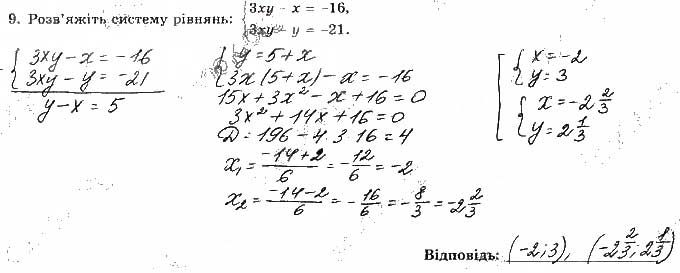 9. Розв'яжіть систему рівнянь: { 3xy - x = -16,
3xy y = -21.
{ 3xy - x = -16
3xy - y = -21
y - x = 5
{ y = 5 + x
3x (5 + x) - x = -16
15x + 3x² - x + 16 = 0
3x² + 14x + 16 = 0
D = 196 - 4·3·16 = 4
x₁ = (-14+2)/6 = -12/6 = -2
x₂ = (-14-2)/6 = -16/6 = -8/3 = -2 2/3
[ { x = -2
y = 3
{ x = -2 2/3
y = 2 1/3
Відповідь: (-2; 3), (-2 2/3; 2 1/3)